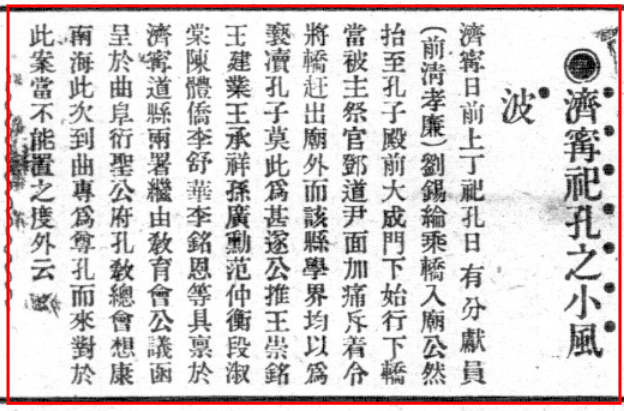 濟寗祀孔之小風
波
濟寗日前上丁祀孔日有分獻員
(前淸孝廉)劉錫綸乘轎入廟公然
抬至孔子殿前大成門下始行下轎
當被主祭官鄧道尹面加痛斥着令
將轎赶出廟外而該縣學界均以爲
褻瀆孔子莫此爲甚遂公推王崇銘
王建業王承祥孫廣勳范仲衡段淑
棠陳體僑李舒華李銘恩等具禀於
濟寗道縣兩署繼由敎育會公議函
呈於曲阜衍聖公府孔敎總會想康
南海此次到曲專爲尊孔而來對於
此案當不能置之度外云